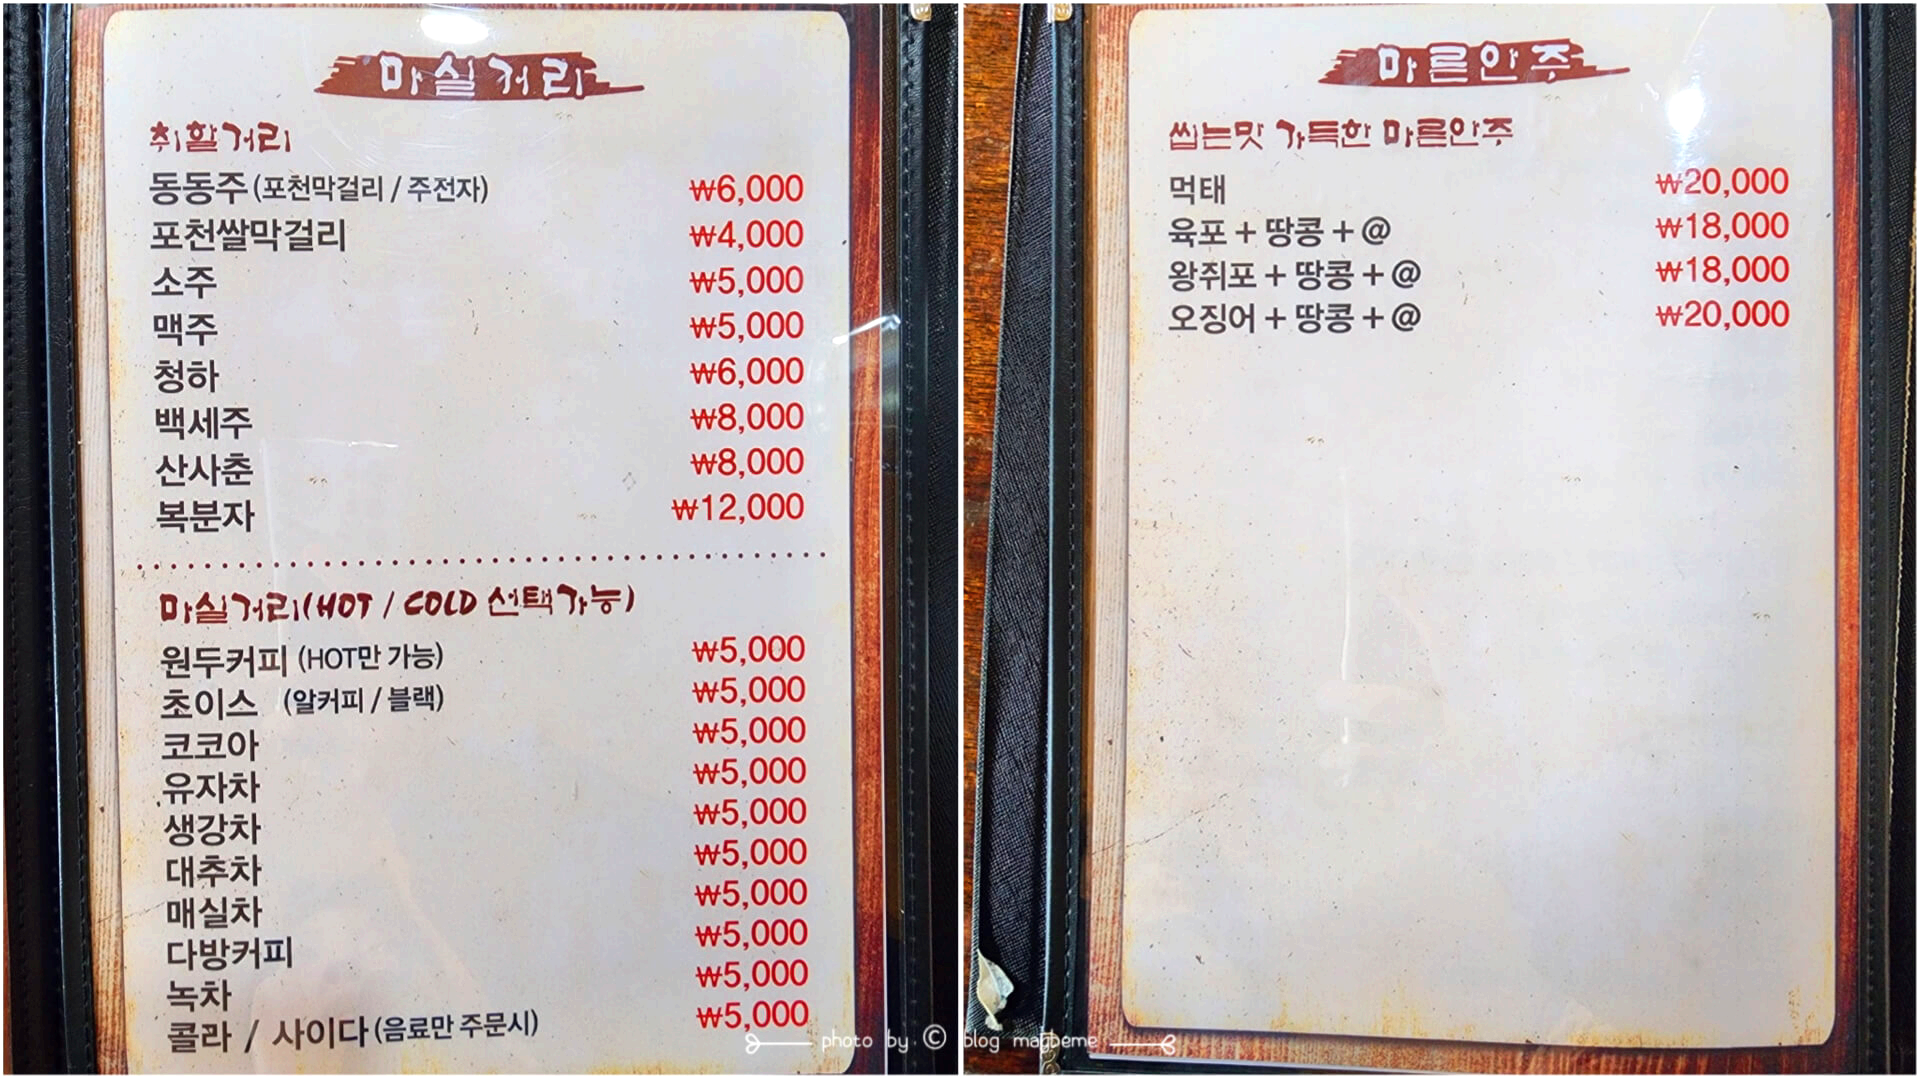 마실거리
취할거리
동동주 (포천막걸리 / 주전자) ₩6,000
포천쌀막걸리 ₩4,000
소주 ₩5,000
맥주 ₩5,000
청하 ₩6,000
백세주 ₩8,000
산사춘 ₩8,000
복분자 ₩12,000
마실거리(HOT / COLD 선택가능)
원두커피 (HOT만 가능) ₩5,000
초이스 (알커피 / 블랙) ₩5,000
코코아 ₩5,000
유자차 ₩5,000
생강차 ₩5,000
대추차 ₩5,000
매실차 ₩5,000
다방커피 ₩5,000
녹차 ₩5,000
콜라 / 사이다 (음료만 주문시) ₩5,000
마른안주
씹는맛 가득한 마른안주
먹태 ₩20,000
육포 + 땅콩 + @ ₩18,000
왕쥐포 + 땅콩 + @ ₩18,000
오징어 + 땅콩 + @ ₩20,000
photo by © blog magbeme